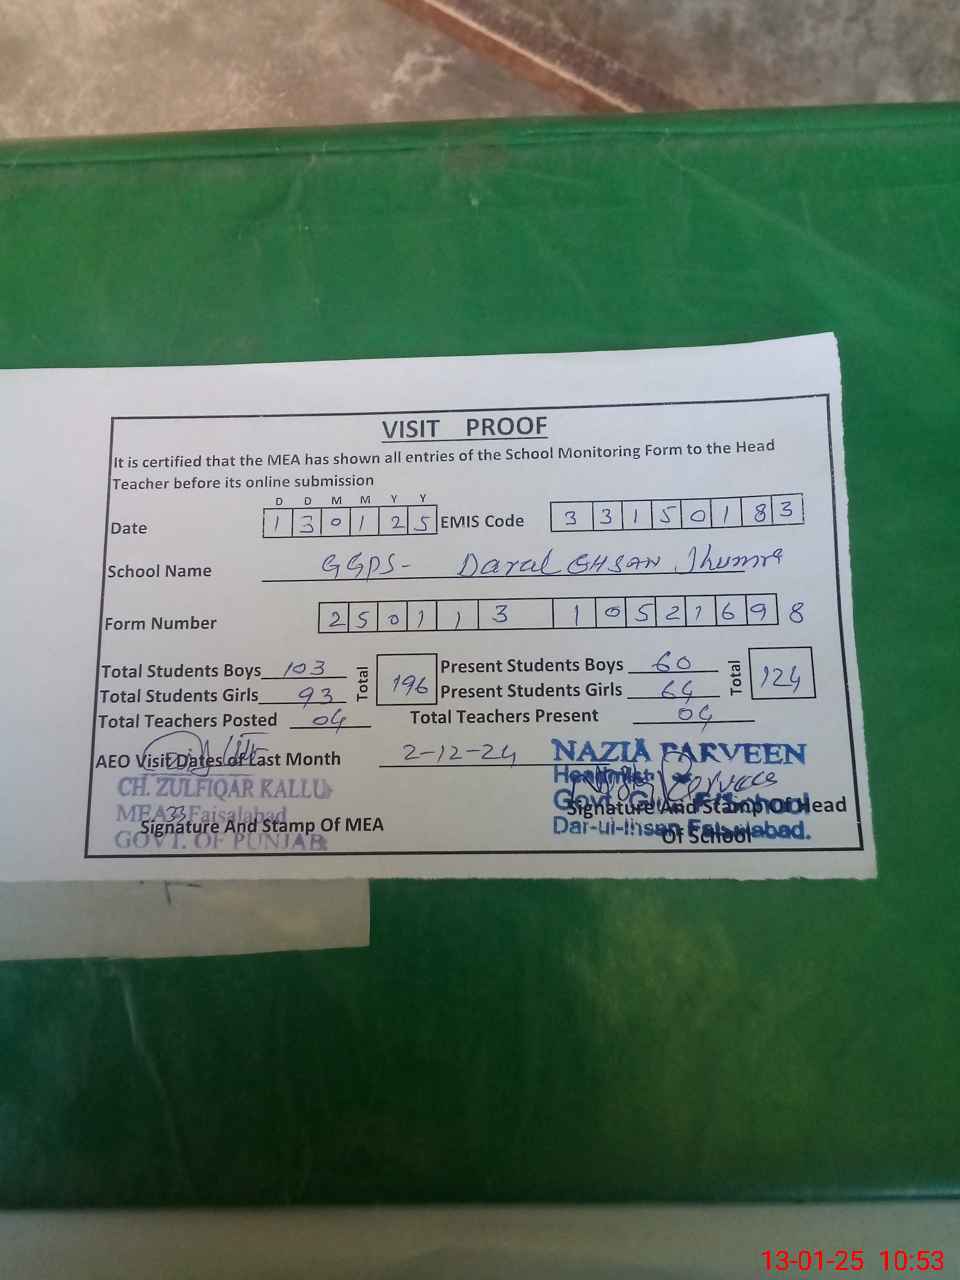 VISIT PROOF
It is certified that the MEA has shown all entries of the School Monitoring Form to the Head
Teacher before its online submission
D D M M Y Y
Date 1 3 0 1 2 5 EMIS Code 3 3 1 5 0 1 8 3
School Name GGPS- Daral EHSAN Jhumra
Form Number 2 5 0 1 1 3 1 0 5 2 1 6 9 8
Total Students Boys 103 Total 196 Present Students Boys 60 Total 124
Total Students Girls 93 Present Students Girls 64
Total Teachers Posted 04 Total Teachers Present 04
AEO Visit Dates of Last Month 2-12-24
CH. ZULFIQAR KALLU
MEA 33 Faisalabad
GOVT. OF PUNJAB
Signature And Stamp Of MEA
NAZIA PARVEEN
Headmistress
Govt. School
Dar-ul-Ihsan Faisalabad.
Signature And Stamp Of Head
Of School
13-01-25 10:53